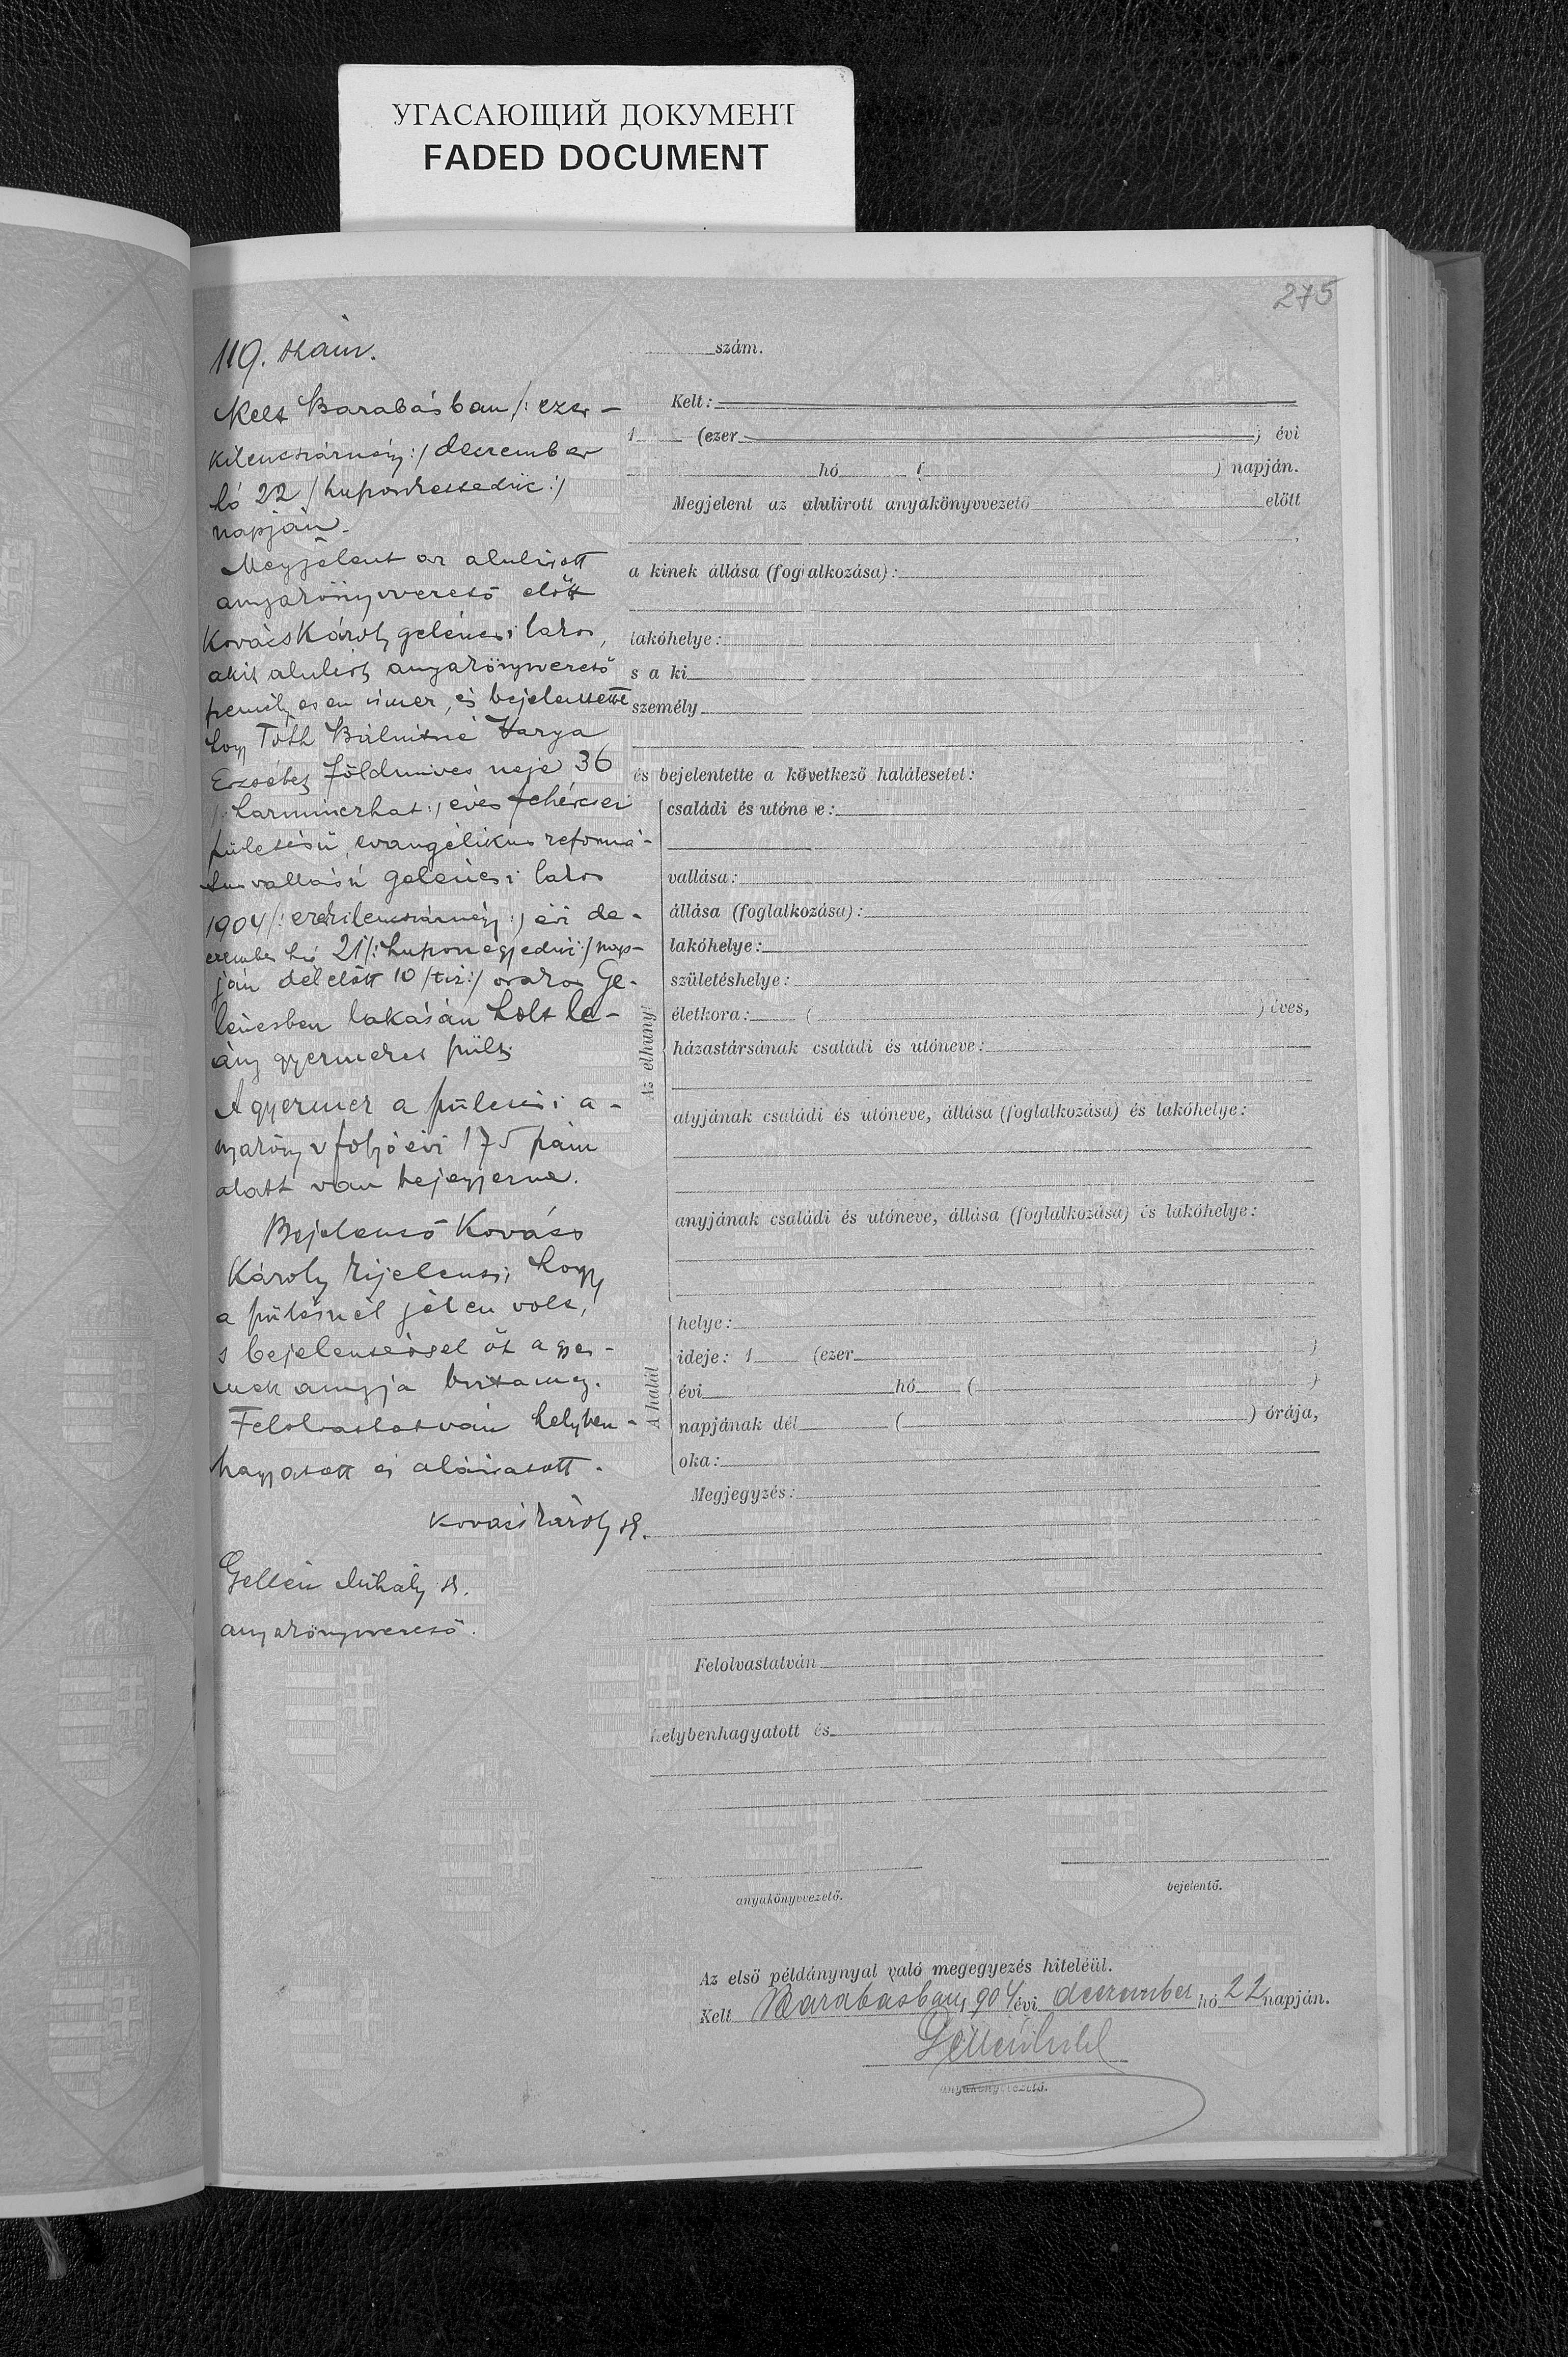 УГАСАЮЩИЙ ДОКУМЕНТ
FADED DOCUMENT
275
119. szám.
Kelt Barabásban /: ezer-
kilencszáznégy :/ deczember
hó 22 /huszonkettedik :/
napján.
Megjelent az alulirott
anyakönyvvezető előtt
Kovács Károly gelénesi lakos,
akit alulirt anyakönyvvezető
személyesen ismer, és bejelentette
hogy Tóth Bálintné Varga
Erzsébet földmives neje 36
/: harminczhat :/ éves fehércsei
születésü, evangélikus reformá-
tus vallásu gelénesi lakos
1904 /: ezerkilencszáznégy :/ évi de-
czember hó 21 /: huszonegyedik :/ nap-
ján délelőtt 10 /tiz :/ órakor Ge-
lénesben lakásán holt le-
ány gyermeket szült.
A gyermek a születési a-
nyakönyv folyó évi 175 szám
alatt van bejegyezve.
Bejelentő Kovács
Károly kijelenti, hogy
a szülésnél jelen volt,
s bejelentéssel őt a gyer-
mek anyja bizta meg.
Felolvastatván helyben-
hagyatott és aláiratott.
Kovács Károly sk.
Gellén Mihály sk.
anyakönyvvezető.
szám.
Kelt:
1 (ezer ) évi
hó ( ) napján.
Megjelent az alulirott anyakönyvvezető előtt
a kinek állása (foglalkozása):
lakóhelye:
s a ki
személy
és bejelentette a következő halálesetet:
Az elhunyt
családi és utóneve:
vallása:
állása (foglalkozása):
lakóhelye:
születéshelye:
életkora: ( ) éves,
házastársának családi és utóneve:
atyjának családi és utóneve, állása (foglalkozása) és lakóhelye:
anyjának családi és utóneve, állása (foglalkozása) és lakóhelye:
A halál
helye:
ideje: 1 (ezer )
évi hó ( )
napjának dél ( ) órája,
oka:
Megjegyzés:
Felolvastatván
helybenhagyatott és
anyakönyvvezető.
bejelentő.
Az első példánynyal való megegyezés hiteléül.
Kelt Barabásban, 904 évi deczember hó 22 napján.
anyakönyvvezető.